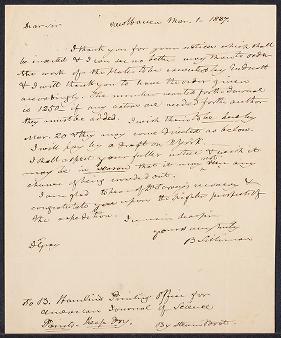 Dear sir New Haven Mar. 1. 1837.
I thank you for your notices which shall
be inserted & I can see no better way than to order
the work of the plates to be executed by Endicott
& I will thank you to leave the order given
accordingly. The number wanted for the Journal
is 1250 if any extra are needed for the author
they must be added. I wish them to be here by
Mar. 20 & they may come directed as below.
I will pay by a draft on N York.
I shall expect your fuller notice & wish it
may be in season that it may not run any
chance of being crowded out.
I am glad to hear of Dr Torrey's recovery &
congratulate you upon the brighter prospects of
the expedition.
I remain dear sir
yours very truly
B Silliman
Dr Gray
To B. Hamlin's Printing Office for
American Journal of Science
By Steam boat.